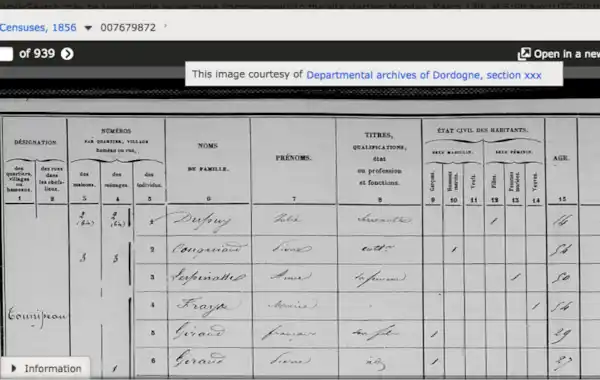 Censuses, 1856 ▾ 007679872
of 939
Open in a new
This image courtesy of Departmental archives of Dordogne, section xxx
DÉSIGNATION
des quartiers, villages ou hameaux
des rues dans les chefs-lieux.
NUMÉROS
PAR QUARTIER, VILLAGE
hameau ou rue,
des maisons.
des ménages.
des individus.
NOMS
DE FAMILLE.
PRÉNOMS.
TITRES,
QUALIFICATIONS,
état
ou profession
et fonctions.
ÉTAT CIVIL DES HABITANTS.
SEXE MASCULIN.
SEXE FÉMININ.
Garçons.
Hommes mariés.
Veufs.
Filles.
Femmes mariées.
Veuves.
AGE.
1 2 3 4 5 6 7 8 9 10 11 12 13 14 15
1 Dupuy 1 14
2 Pierre cult 1 54
3 3
3 Lespinasse sa femme 1 50
4 1 54
5 Giraud françois son fils 1 29
6 Giraud Pierre id 1 27
Information